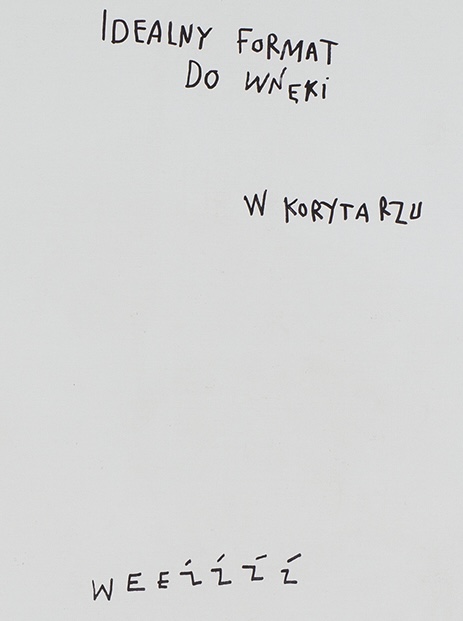 IDEALNY FORMAT
DO WNĘKI
W KORYTARZU
WEEŹŹŹŹ